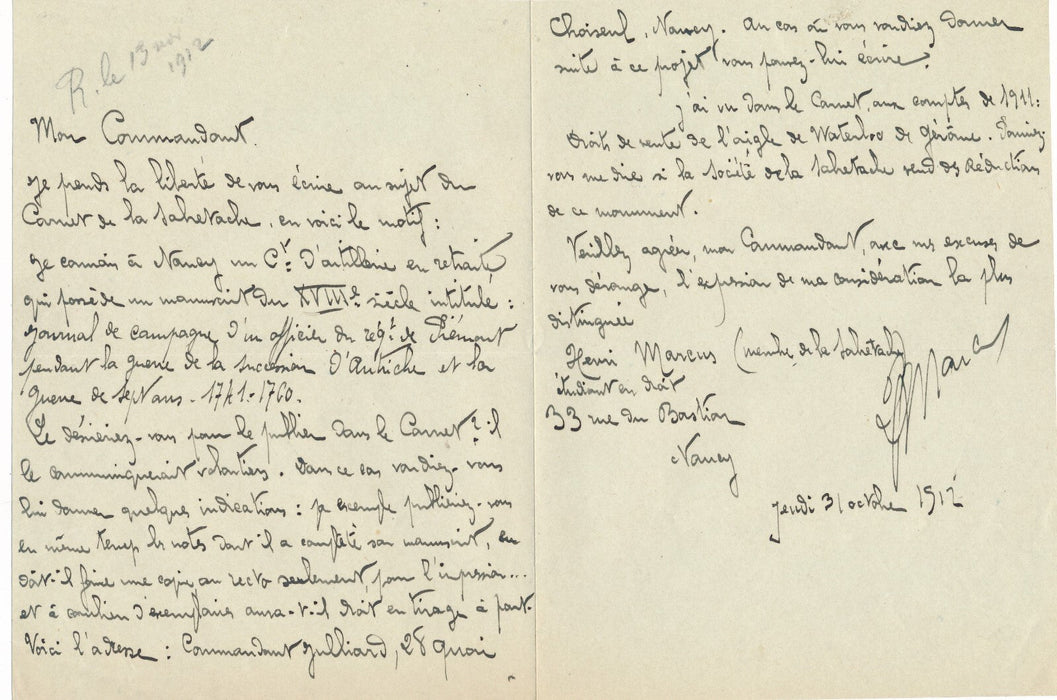 R. le 13 nov
1912
Mon Commandant.
Je prends la liberté de vous écrire au sujet du
Carnet de la Sabretache, en voici le motif :
Je connais à Nancy un Ct. d'artillerie en retraite
qui possède un manuscrit du XVIIIe siècle intitulé :
Journal de campagne d'un officier du régt. de Piémont
pendant la guerre de la succession d'Autriche et la
guerre de sept ans - 1741-1760.
Le désireriez-vous pour le publier dans le Carnet ? il
le communiquerait volontiers. Dans ce cas voudriez-vous
lui donner quelques indications : p. exemple publieriez-vous
en même temps les notes dont il a complété son manuscrit, ou
doit-il faire une copie au recto seulement, pour l'impression...
et à combien d'exemplaires aura-t-il droit en tirage à part.
Voici l'adresse : Commandant Julliard, 28 quai
Choiseul, Nancy. Au cas où vous voudriez donner
suite à ce projet vous pouvez-lui écrire.
J'ai vu dans le Carnet, aux comptes de 1911 :
Droits de vente de l'aigle de Waterloo de Gérôme. Pourriez-
vous me dire si la société de la Sabretache vend des Réductions
de ce monument.
Veuillez agréer, mon Commandant, avec mes excuses de
vous déranger, l'expression de ma considération la plus
distinguée
Henri Marcus (membre de la Sabretache)
étudiant en droit
33 rue du Bastion
Nancy
HMarcus
Jeudi 31 octobre 1912